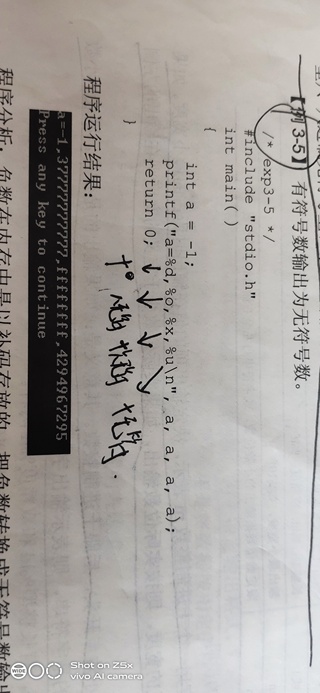 【例 3-5】 有符号数输出为无符号数。
/* exp3-5 */
#include "stdio.h"
int main( )
{
int a = -1;
printf("a=%d,%o,%x,%u\n", a, a, a, a);
return 0;
}
程序运行结果：
a=-1,37777777777,ffffffff,4294967295
Press any key to continue
程序分析：负数在内存中是以补码存放的，把负数转换成无符号数输出
Shot on Z5x
vivo AI camera